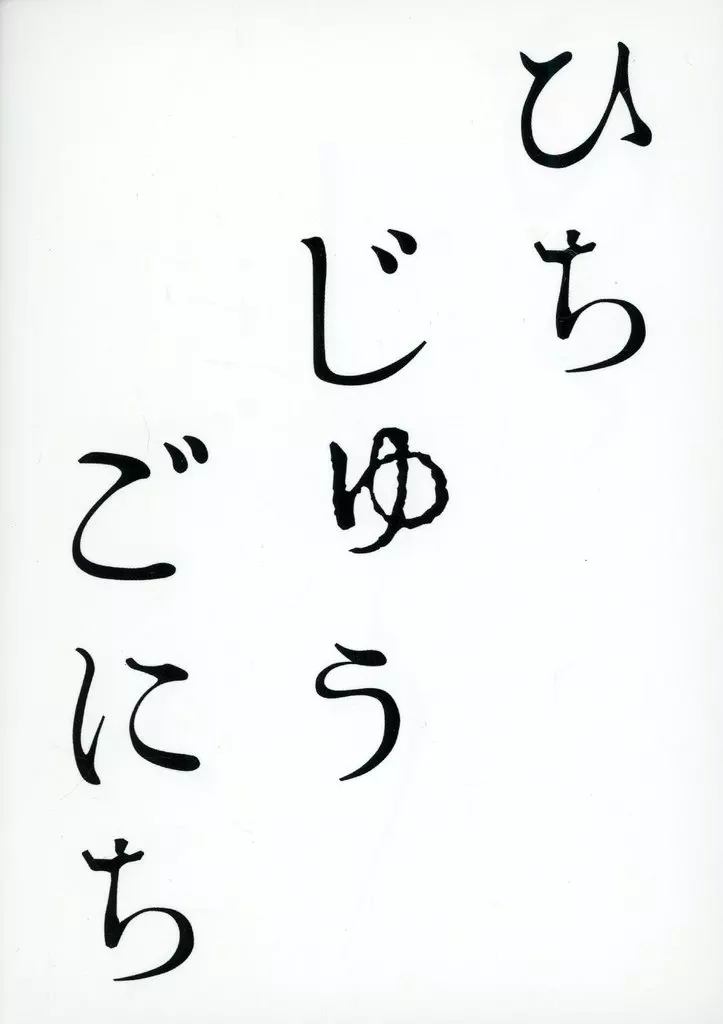 ひち
じゅう
ごにち